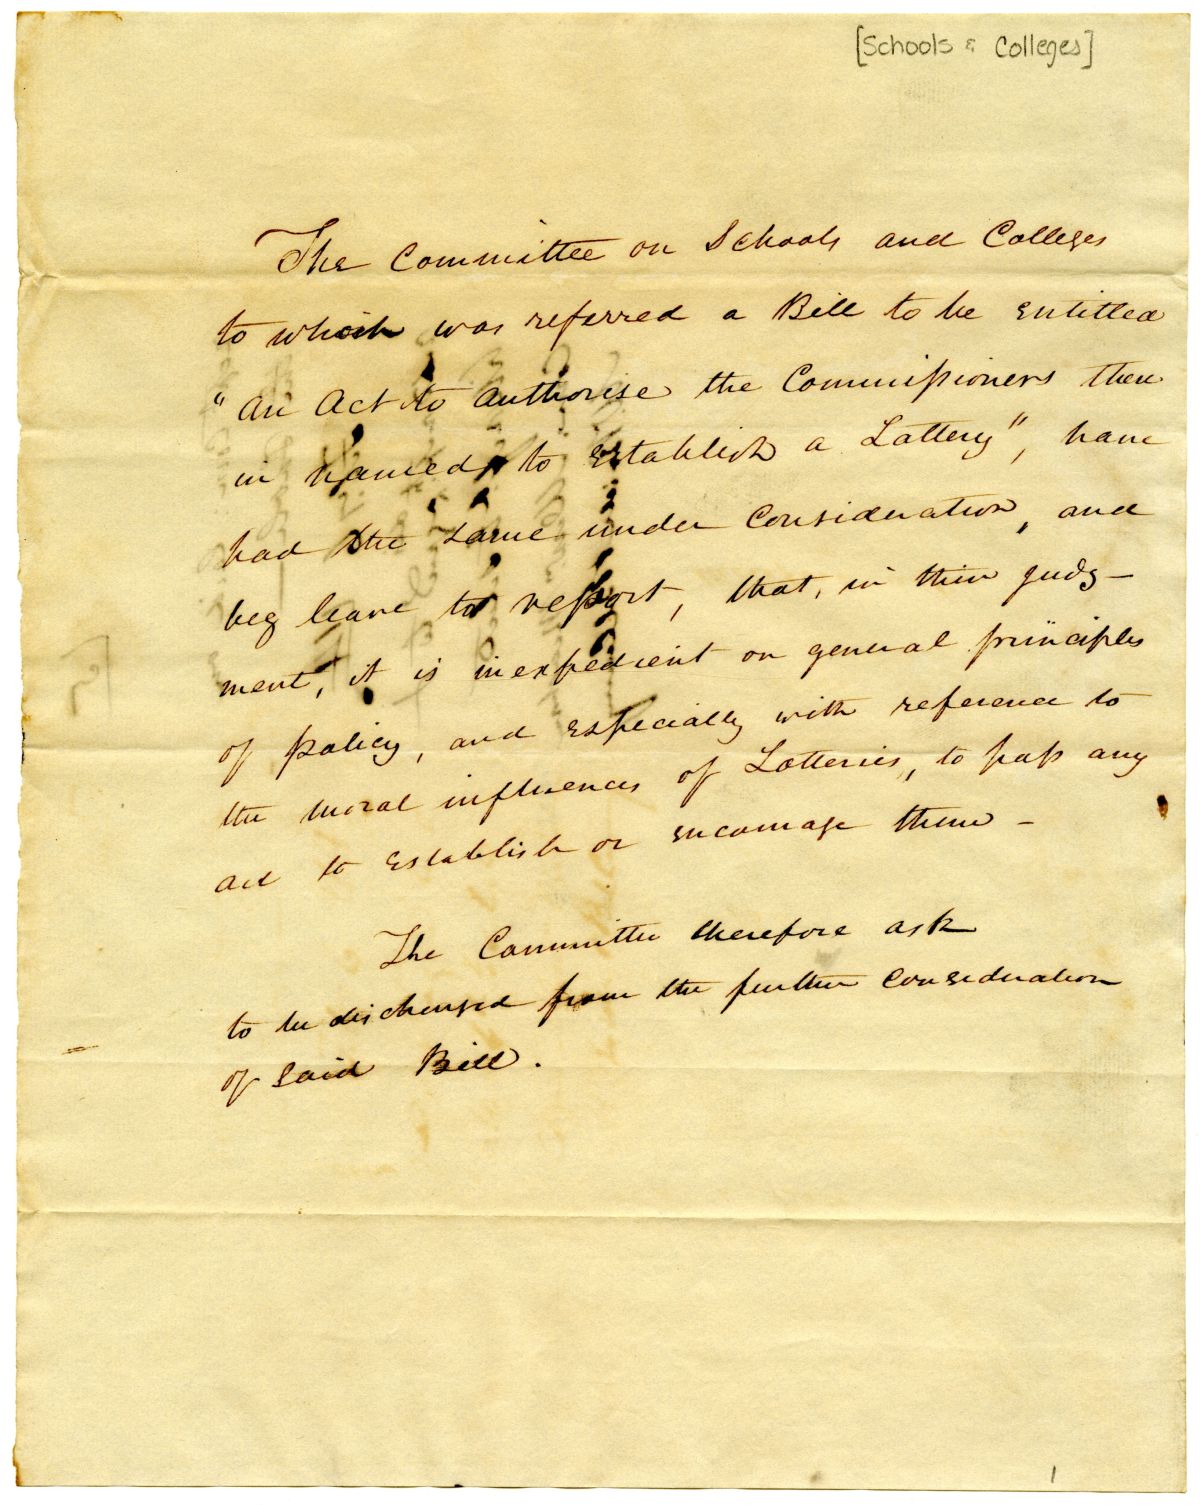 [Schools & Colleges]
The Committee on Schools and Colleges
to which was referred a Bill to be entitled
"An Act to authorise the Commissioners there
in named, to establish a Lottery", have
had the same under consideration, and
beg leave to report, that, in their judg-
ment, it is inexpedient on general principles
of policy, and especially with reference to
the moral influences of Lotteries, to pass any
act to establish or encourage them –
The Committee therefore ask
to be discharged from the further consideration
of said Bill.
1